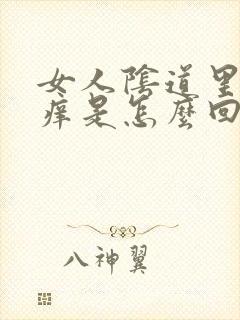 女人陰道里
痒是怎麼回
八神翼